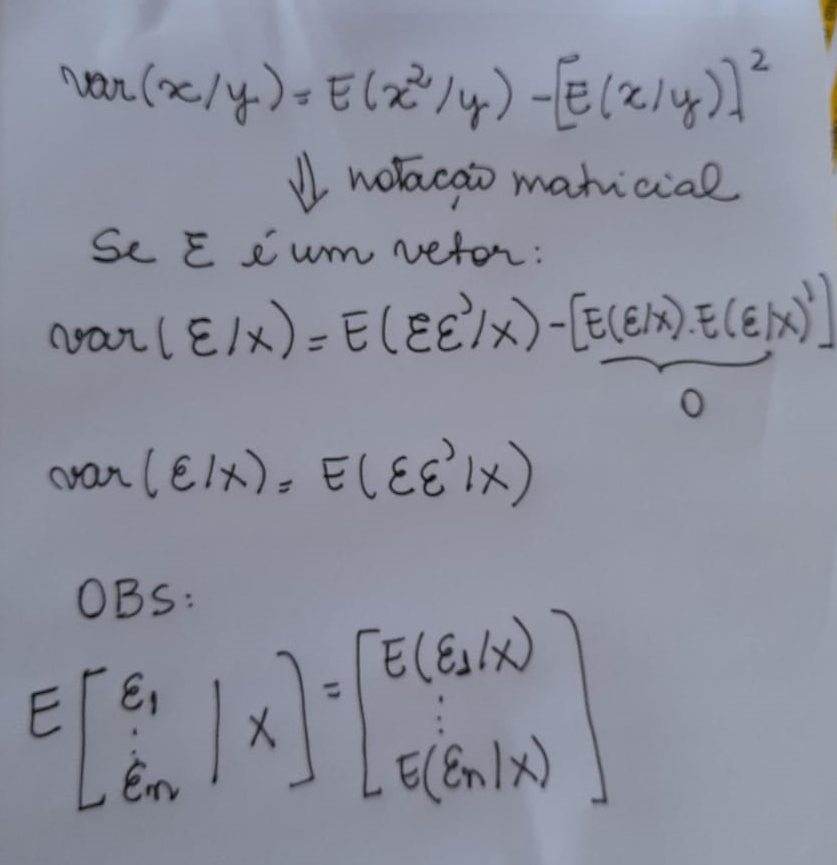 var(x/y) = E(x²/y) - [E(x/y)]²
⇓ notação matricial
Se ε é um vetor:
var(ε/x) = E(εε'/x) - [E(ε/x).E(ε/x)']
0
var(ε/x) = E(εε'/x)
OBS:
E[ε₁ ⋮ εₙ | x] = [E(ε₁/x) ⋮ E(εₙ|x)]